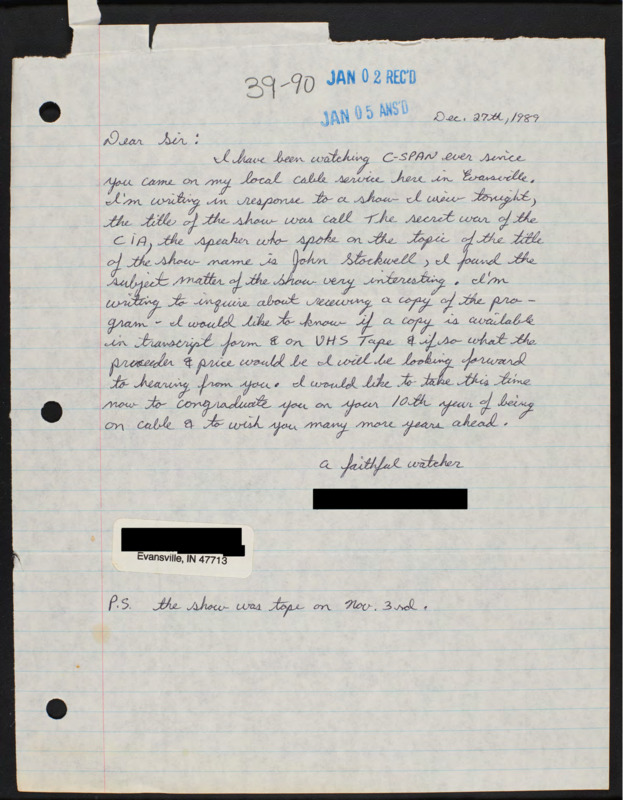 39-90 JAN 02 REC'D
JAN 05 ANS'D
Dec. 27th, 1989
Dear Sir:
I have been watching C-SPAN ever since
you came on my local cable service here in Evansville.
I'm writing in response to a show I view tonight,
the title of the show was call The secret war of the
CIA, the speaker who spoke on the topic of the title
of the show name is John Stockwell, I found the
subject matter of the show very interesting. I'm
writing to inquire about receiving a copy of the pro-
gram - I would like to know if a copy is available
in transcript form & on VHS Tape & if so what the
& price would be I will be looking forward
to hearing from you. I would like to take this time
now to congraduate you on your 10th year of being
on cable & to wish you many more years ahead.
a faithful watcher
Evansville, IN 47713
P.S. the show was tape on Nov. 3rd.